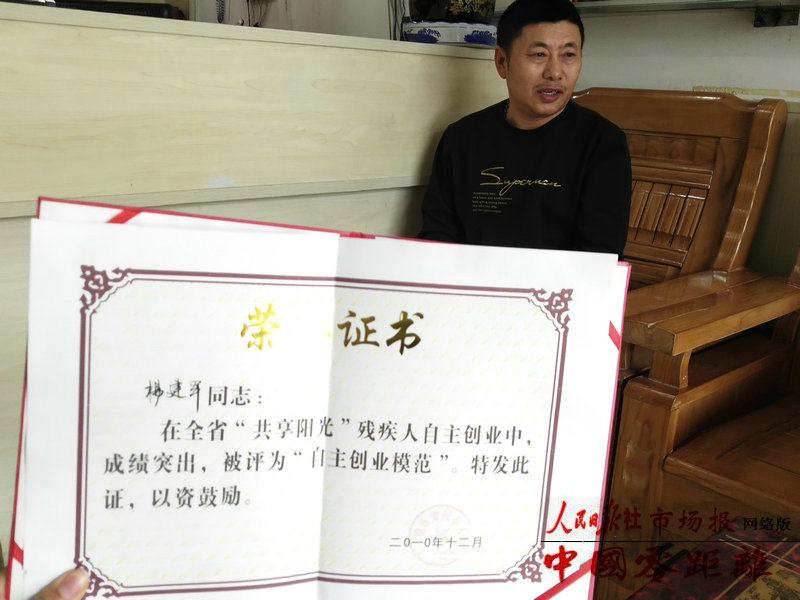 Superman
荣 证书
杨建军同志:
在全省“共享阳光”残疾人自主创业中,
成绩突出,被评为“自主创业模范”。特发此
证,以资鼓励。
二〇一〇年十二月
人民日报社市场报 网络版
中國零距離